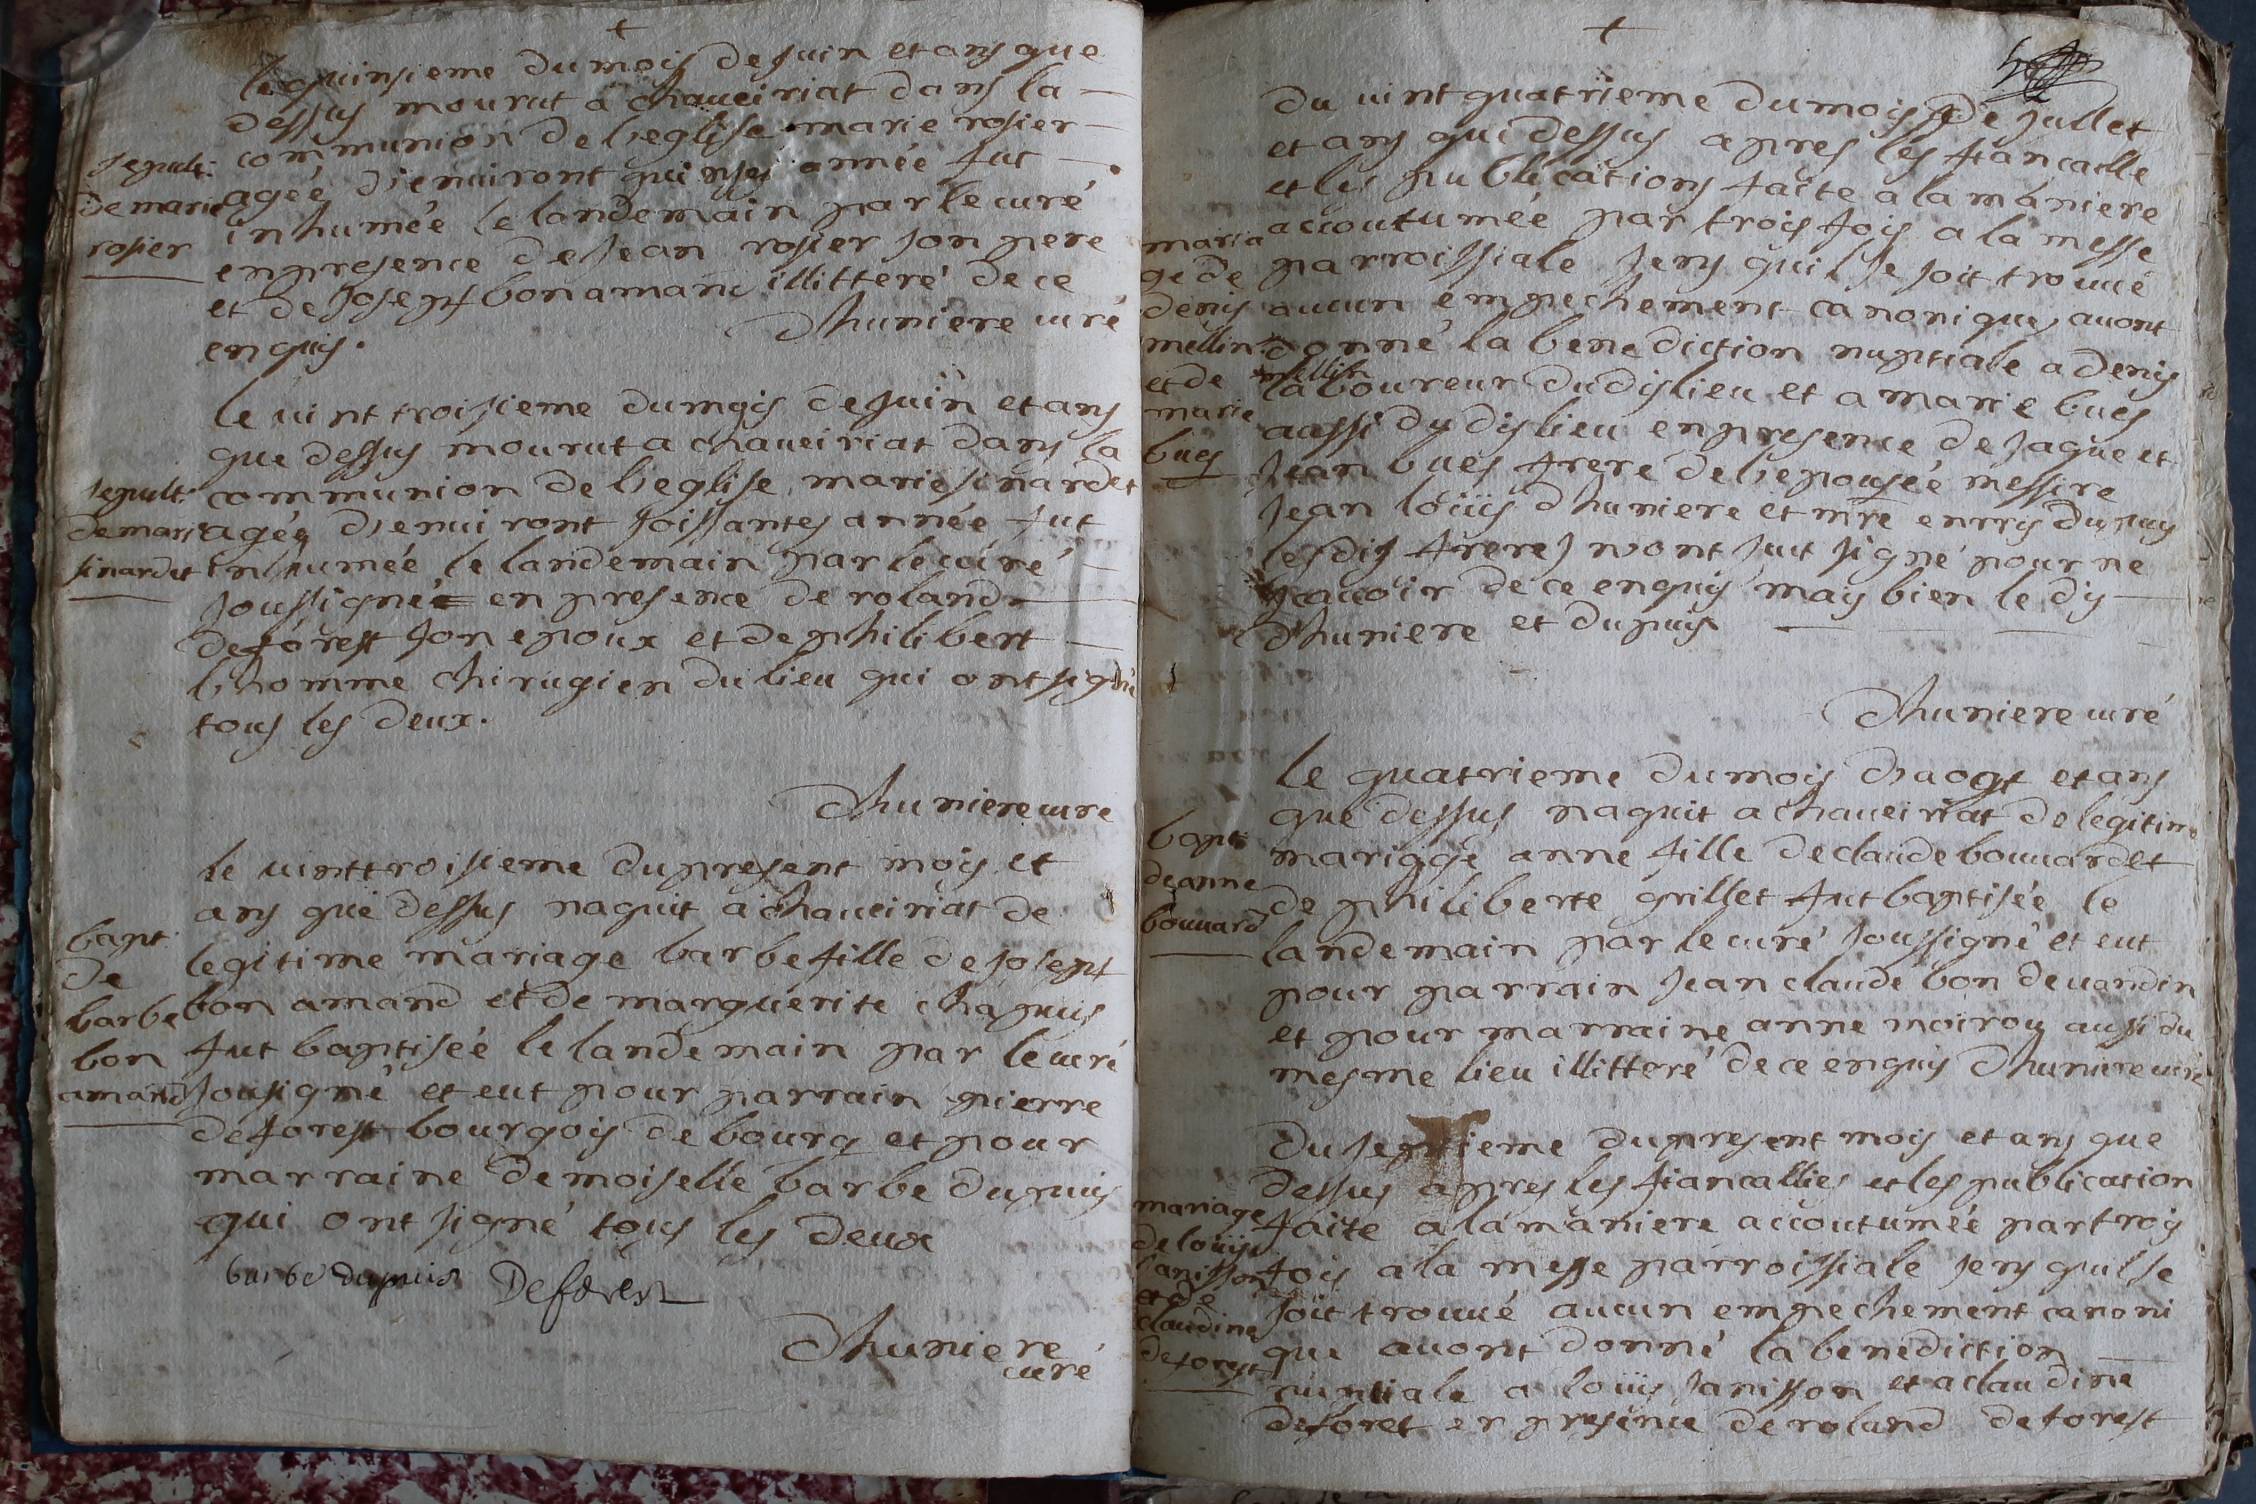 +
le quinsieme du mois de juin et ans que
dessus mourut a chaveiriat dans la
communion de l'eglise marie rosier
sepult:
agéé d'environt quinses année fut
de marie
inhuméé le landemain par le curé
rosier
en presence de Jean rosier son pere
et de Josept bonamant illitteré de ce
enquis. Dhuniere curé
le vint troisieme du mois de juin et ans
que dessus mourut a chaveiriat dans la
sepult:
communion de l'eglise marie sinardet
de marie
agéé d'environt soissantes année fut
sinardet
inhuméé le landemain par le curé
soussigné en presence de roland
deforest son epoux et de philibert
lhomme chirugien du lieu qui ont signé
tous les deux.
Dhuniere curé
le vinttroisieme du present mois et
ans que dessus naquit a chaveiriat de
bapt.
legitime mariage barbe fille de Josept
de
barbe
bon amand et de marguerite chapuis
bon
fut baptiséé le landemain par le curé
amand
sousigné et eut pour parrain pierre
deforest bourgois de bourg et pour
marraine demoiselle barbe dupuis
qui ont signé tous les deux
barbe dupuis Deforest
Dhuniere
curé
+
du vint quatrieme du mois de Jullet
et ans qui dessus apres les fiancaille
et les publications faite a la maniere
accoutuméé par trois fois a la messe
maria
parroissiale sens quil se soit trouvé
ge de
denis
aucun empechement canonique, avont
mellin
donné la benediction nuptiale a denis
mellin
et de
laboureur dudis lieu et a marie bues
marie
aussi du dis lieu en presence de Jaque et
bues
Jean bues frere de l'epouséé messire
Jean loüis dhuniere et mre enrrys dupuys
lesdis freres n'ont sut signé pour ne
scavoir de ce enquis mais bien le dis
dhuniere et dupuis
Dhuniere curé
le quatrieme du mois d'aost et ans
que dessus naquit a chaveiriat de legitime
bapt:
mariage anne fille de claude bouvard et
de anne
de philiberte grillet fut baptiséé le
bouvard
landemain par le curé soussigné et eut
pour parrain Jean claude bon devandin
et pour marraine anne moiroy aussi du
mesme lieu illitteré de ce enquis Dhuniere curé
du septieme du present mois et ans que
dessus apres les fiancallies et les publication
mariage
faite a la maniere accoutuméé par trois
de loüis
Janisson
fois a la messe parroissiale sens quil se
et de
soit trouvé aucun empechement canoni
claudine
que avont donné la benediction
deforest
nuptiale a loüis Janisson et a claudine
deforet en presence de roland deforest